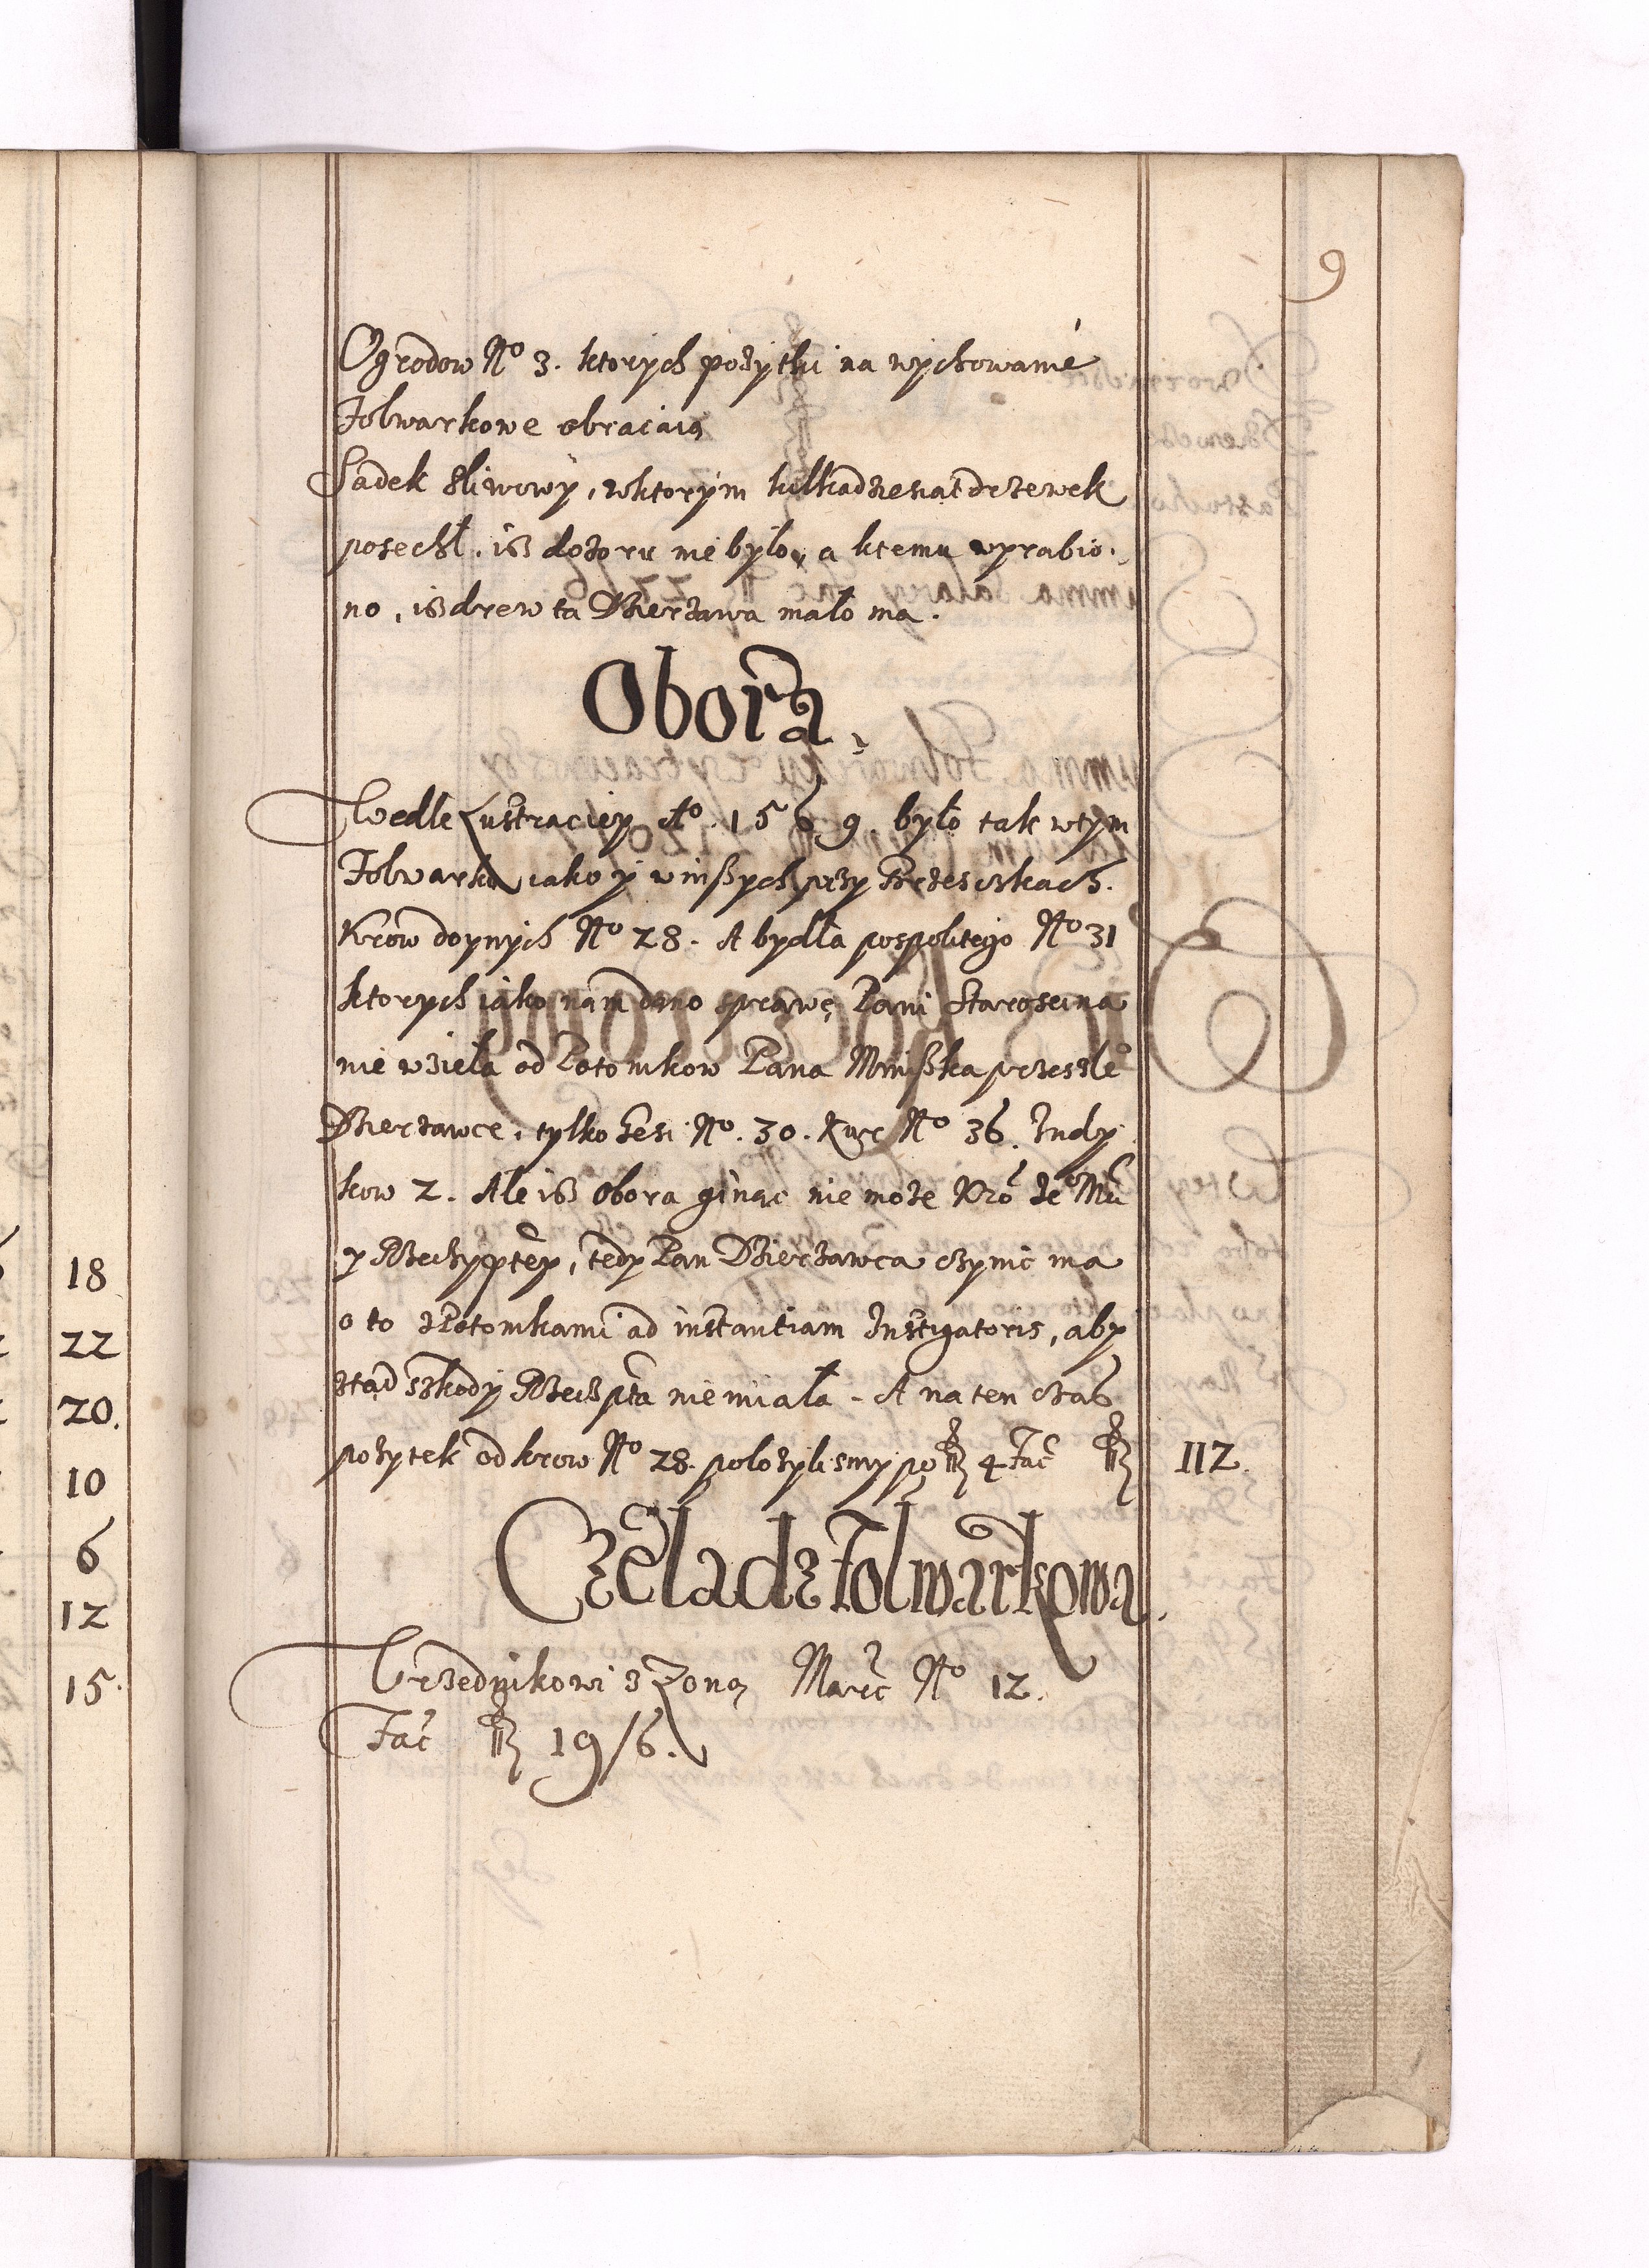 9
Ogrodow No 3. ktorych pożytki na wychowanie
Folwarkowe obracaią
Sadek śliwowy, wktorym kilkadziesiąt drzewek
poschł, iß dozoru nie było, a ktemu wyrabio-
no, iß drew ta Dzierżawa mało ma.
Obora.
Wedle Lustraciey Ao. 1569. było tak wtym
Folwarku iako y winßych przy
Krow doynych No 28. A bydła pospolitego No 31
ktorych iako nam dano sprawę Pani Starosćina
nie wzieła od Potomkow Pana Mnißka przeszłeo
Dzierżawce, tylko Gęsi No. 30. Kur No 36. Indy-
kow 2. Ale iß obora ginąc nie może
y Rzeczyptey, tedy Pan Dzierżawca czynic ma
o to zPotomkami ad instantiam Instigatoris, aby
ztąd szkody Rzeczpta nie miała. A na ten czas
pożytek od krow No 28. położylismy po 4 Fac 112.
Czeladz Folwarkowa.
Vrzednikowi z Zoną Marc No 12.
Fac 19/6.
18
22
20.
10
6
12
15.